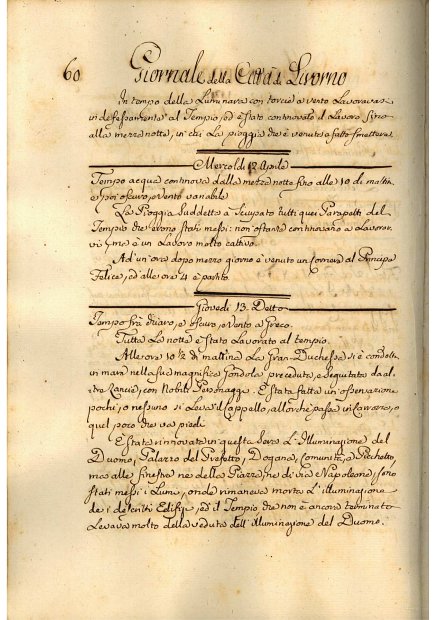 60 Giornale della Città di Livorno
In tempo della Luminara con torcie a vento Lavoravasi
indefessamente al Tempio, ed è stato continovato il Lavoro sino
alla mezza notte, in cui La pioggia che è venuta à fatto smettere.
Mercoldì 12 Aprile
Tempo acqua continova dalla mezza notte sino alle 10 di mattina
e poi oscuro, e vento variabile
La Pioggia suddetta à sciupato tutti quei Parapetti del
Tempio che erono stati messi: non ostante continovano a Lavorar
vi, ma è un Lavoro molto cattivo.
Ad un'ora dopo mezzo giorno è venuto un Corriere al Principe
Felice, ed alle ore 4 è partito.
Giovedì 13. Detto
Tempo frà chiaro, e oscuro, e Vento a Greco.
Tutta La notte è stato Lavorato al tempio.
Alle ore 10 ½ di mattina La Gran-Duchessa si è condotta
in mare nella sua magnifica Gondola preceduta, e seguitata da al
tre Lancie, con Nobili Personaggi. È stata fatta un'osservazione
pochi, o nessuno si Leva il Cappello, allorchè passa in Carrozza, o
quel poco che va a piedi.
È stata rinnovata in questa sera L'Illuminazione del
Duomo, Palazzo del Prefetto, Dogana, Comunità, e Picchetto,
ma alle finestre ne della Piazza, ne di via Napoleone, sono
stati messi i Lumi, onde rimaneva morta L'illuminazione
de i descritti Edifizi, ed il Tempio che non è ancora terminato
Levava molto della veduta dell'illuminazione del Duomo.